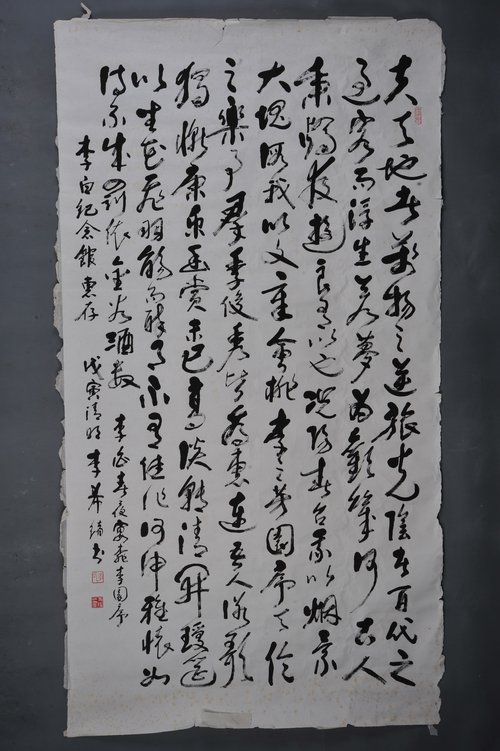 夫天地者萬物之逆旅光陰者百代之
過客而浮生若夢為歡幾何古人
秉燭夜遊良有以也況陽春召我以烟景
大塊假我以文章會桃李之芳園序天倫
之樂事群季俊秀皆為惠連吾人詠歌
獨慚康樂幽賞未已高談轉清開瓊筵
以坐花飛羽觴而醉月不有佳作何伸雅懷如
詩不成罰依金谷酒數 李白春夜宴桃李園序
李白紀念館惠存 戊寅清明 李 書